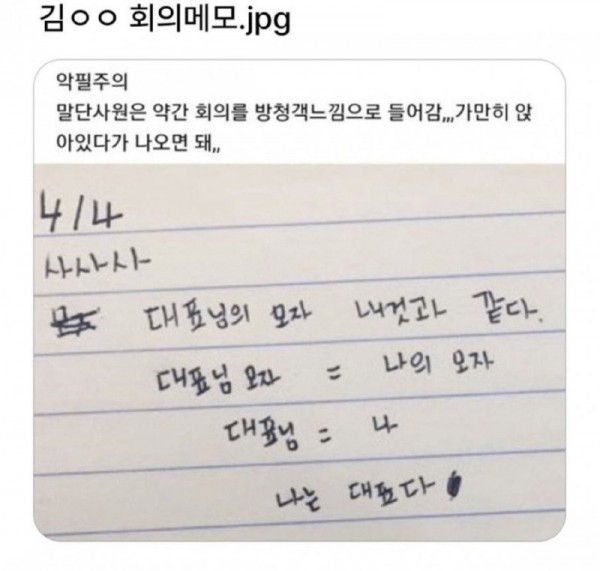 김ㅇㅇ 회의메모.jpg
악필주의
말단사원은 약간 회의를 방청객느낌으로 들어감,,,가만히 앉
아있다가 나오면 돼,,
4/4
사사사
대표님의 모자 내것과 같다.
대표님 모자 = 나의 모자
대표님 = 나
나는 대표다